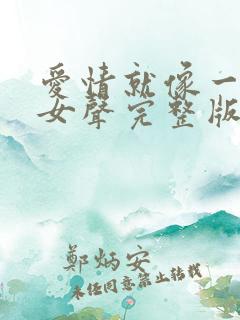 愛情就像一
女聲完整版
鄭炳安
未经同意禁止转载